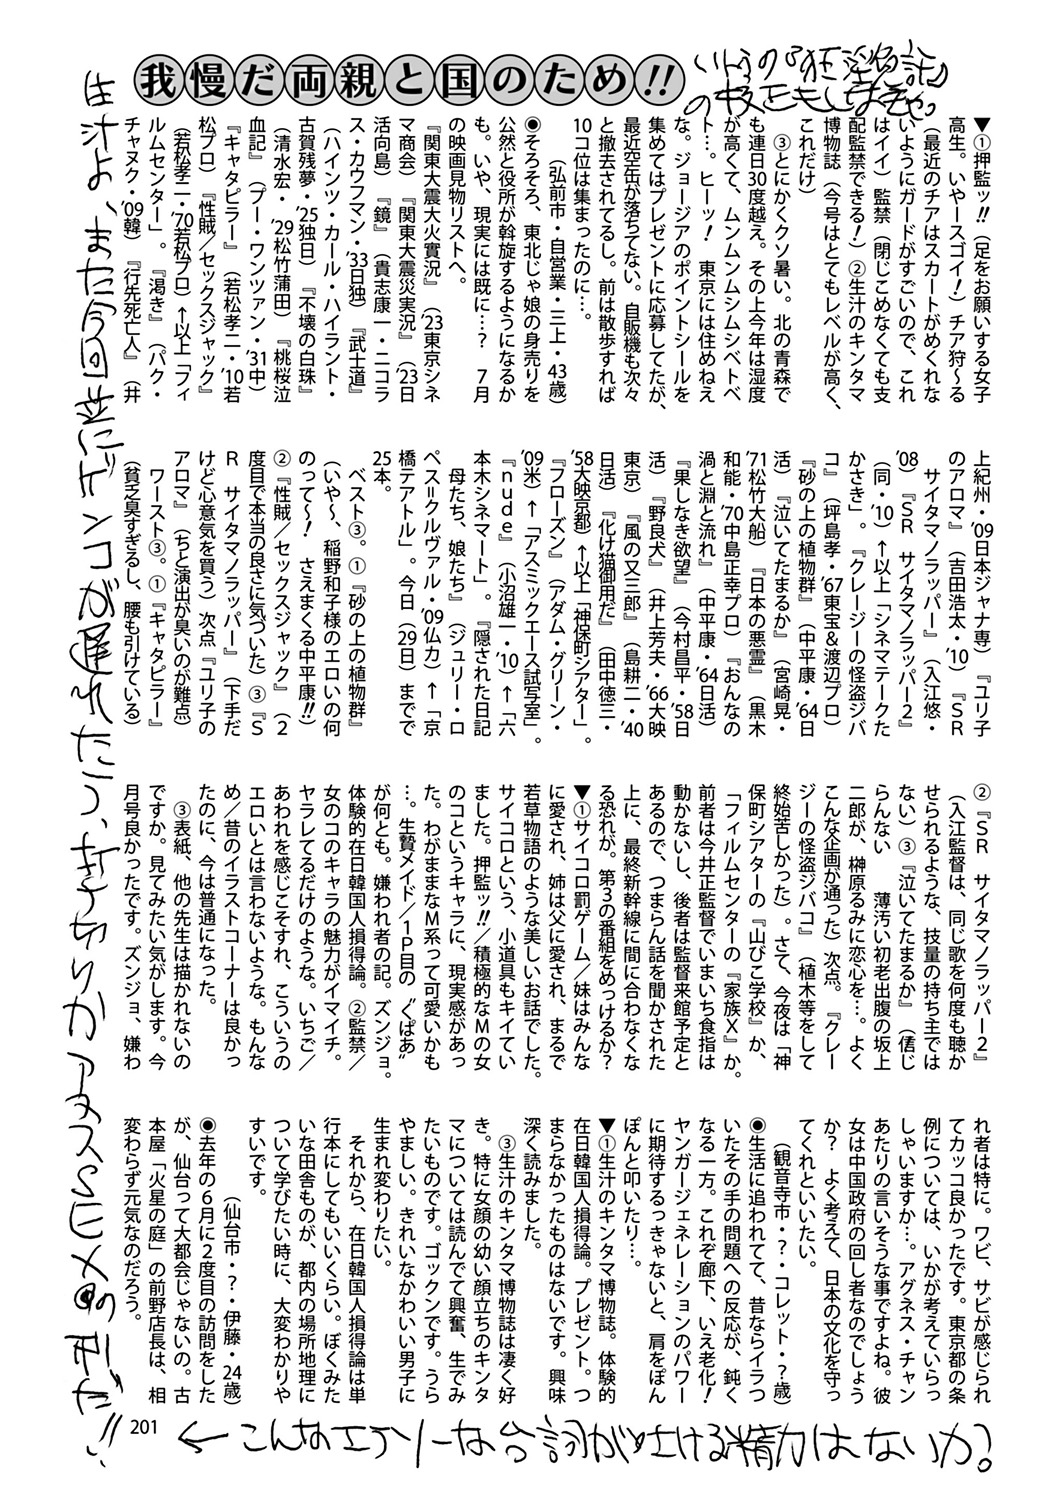 我慢だ両親と国のため!!
▼①押監ッ!!（足をお願いする女子
高生。いやースゴイ！）チア狩～る
（最近のチアはスカートがめくれな
いようにガードがすごいので、これ
はイイ）監禁（閉じこめなくても支
配監禁できる！）②生汁のキンタマ
博物誌（今号はとてもレベルが高く、
これだけ）
③とにかくクソ暑い。北の青森で
も連日30度越え。その上今年は湿度
が高くて、ムンムンムシムシベトベ
ト…。ヒーッ！　東京には住めねえ
な。ジョージアのポイントシールを
集めてはプレゼントに応募してたが、
最近空缶が落ちてない。自販機も次々
と撤去されてるし。前は散歩すれば
10コ位は集まったのに…。
（弘前市・自営業・三上・43歳）
◉そろそろ、東北じゃ娘の身売りを
公然と役所が斡旋するようになるか
も。いや、現実には既に…？　7月
の映画見物リストへ。
『関東大震大火實況』（'23東京シネ
マ商会）『関東大震災実況』（'23日
活向島）『鏡』（貴志康一・ニコラ
ス・カウフマン・'33日独）『武士道』
（ハインツ・カール・ハイラント・
古賀残夢・'25独日）『不壊の白珠』
（清水宏・'29松竹蒲田）『桃桜泣
血記』（プー・ワンツァン・'31中）
『キャタピラー』（若松孝二・'10若
松プロ）『性賊／セックスジャック』
（若松孝二・'70若松プロ）↑以上「フィ
ルムセンター」。『渇き』（パク・
チャヌク・'09韓）『行先死亡人』（井
上紀州・'09日本ジャナ専）『ユリ子
のアロマ』（吉田浩太・'10）『SR
サイタマノラッパー』（入江悠・
'08）『SR　サイタマノラッパー2』
（同・'10）↑以上「シネマテークた
かさき」。『クレージーの怪盗ジバ
コ』（坪島孝・'67東宝＆渡辺プロ）
『砂の上の植物群』（中平康・'64日
活）『泣いてたまるか』（宮崎晃・
'71松竹大船）『日本の悪霊』（黒木
和能・'70中島正幸プロ）『おんなの
渦と淵と流れ』（中平康・'64日活）
『果しなき欲望』（今村昌平・'58日
活）『野良犬』（井上芳夫・'66大映
東京）『風の又三郎』（島耕二・'40
日活）『化け猫御用だ』（田中徳三・
'58大映京都）↑以上「神保町シアター」。
『フローズン』（アダム・グリーン・
'09米）↑「アスミックエース試写室」。
『nude』（小沼雄一・'10）↑「六
本木シネマート」。『隠された日記
母たち、娘たち』（ジュリー・ロ
ペス＝クルヴァル・'09仏カ）↑「京
橋テアトル」。今日（29日）までで
25本。
ベスト③。①『砂の上の植物群』
（いや～、稲野和子様のエロいの何
のって～！　さえまくる中平康!!）
②『性賊／セックスジャック』（2
度目で本当の良さに気づいた）③『S
R　サイタマノラッパー』（下手だ
けど心意気を買う）次点『ユリ子の
アロマ』（ちと演出が臭いのが難点）
ワースト③。①『キャタピラー』
（貧乏臭すぎるし、腰も引けている）
②『SR　サイタマノラッパー2』
（入江監督は、同じ歌を何度も聴か
せられるような、技量の持ち主では
ない）③『泣いてたまるか』（信じ
らんない　薄汚い初老出腹の坂上
二郎が、榊原るみに恋心を…。よく
こんな企画が通った）次点。『クレー
ジーの怪盗ジバコ』（植木等をして
終始苦しかった）。さて、今夜は「神
保町シアターの『山びこ学校』か、
「フィルムセンターの『家族X』か。
前者は今井正監督でいまいち食指は
動かないし、後者は監督来館予定と
あるので、つまらん話を聞かされた
上に、最終新幹線に間に合わなくな
る恐れが。第3の番組をめっけるか？
▼①サイコロ罰ゲーム／妹はみんな
に愛され、姉は父に愛され、まるで
若草物語のような美しいお話でした。
サイコロという、小道具もキイてい
ました。押監ッ!!／積極的なMの女
のコというキャラに、現実感があっ
た。わがままなM系って可愛いかも
…。生贄メイド／1P目の〝くぱあ〟
が何とも。嫌われ者の記。ズンジョ。
体験的在日韓国人損得論。②監禁／
女のコのキャラの魅力がイマイチ。
ヤラレてるだけのような。いちご／
あわれを感じこそすれ、こういうの
エロいとは言わないような。もんな
め／昔のイラストコーナーは良かっ
たのに、今は普通になった。
③表紙、他の先生は描かれないの
ですか。見てみたい気がします。今
月号良かったです。ズンジョ、嫌わ
れ者は特に。ワビ、サビが感じられ
てカッコ良かったです。東京都の条
例については、いかが考えていらっ
しゃいますか…。アグネス・チャン
あたりの言いそうな事ですよね。彼
女は中国政府の回し者なのでしょう
か？　よく考えて、日本の文化を守っ
てくれといいたい。
（観音寺市・？・コレット・？歳）
◉生活に追われてて、昔ならイラつ
いたその手の問題への反応が、鈍く
なる一方。これぞ廊下、いえ老化！
ヤンガージェネレーションのパワー
に期待するっきゃないと、肩をぽん
ぽんと叩いたり…。
▼①生汁のキンタマ博物誌。体験的
在日韓国人損得論。プレゼント。つ
まらなかったものはないです。興味
深く読みました。
③生汁のキンタマ博物誌は凄く好
き。特に女顔の幼い顔立ちのキンタ
マについては読んでて興奮、生でみ
たいものです。ゴックンです。うら
やましい。きれいなかわいい男子に
生まれ変わりたい。
それから、在日韓国人損得論は単
行本にしてもいいくらい。ぼくみた
いな田舎ものが、都内の場所地理に
ついて学びたい時に、大変わかりや
すいです。
（仙台市・？・伊藤・24歳）
◉去年の6月に2度目の訪問をした
が、仙台って大都会じゃないの。古
本屋「火星の庭」の前野店長は、相
変わらず元気なのだろう。
生汁よ、また今回共にゲンコが遅れたこっ、
の刑だ!!
←こんなエナジーな台詞が吐ける精力はないか？
201